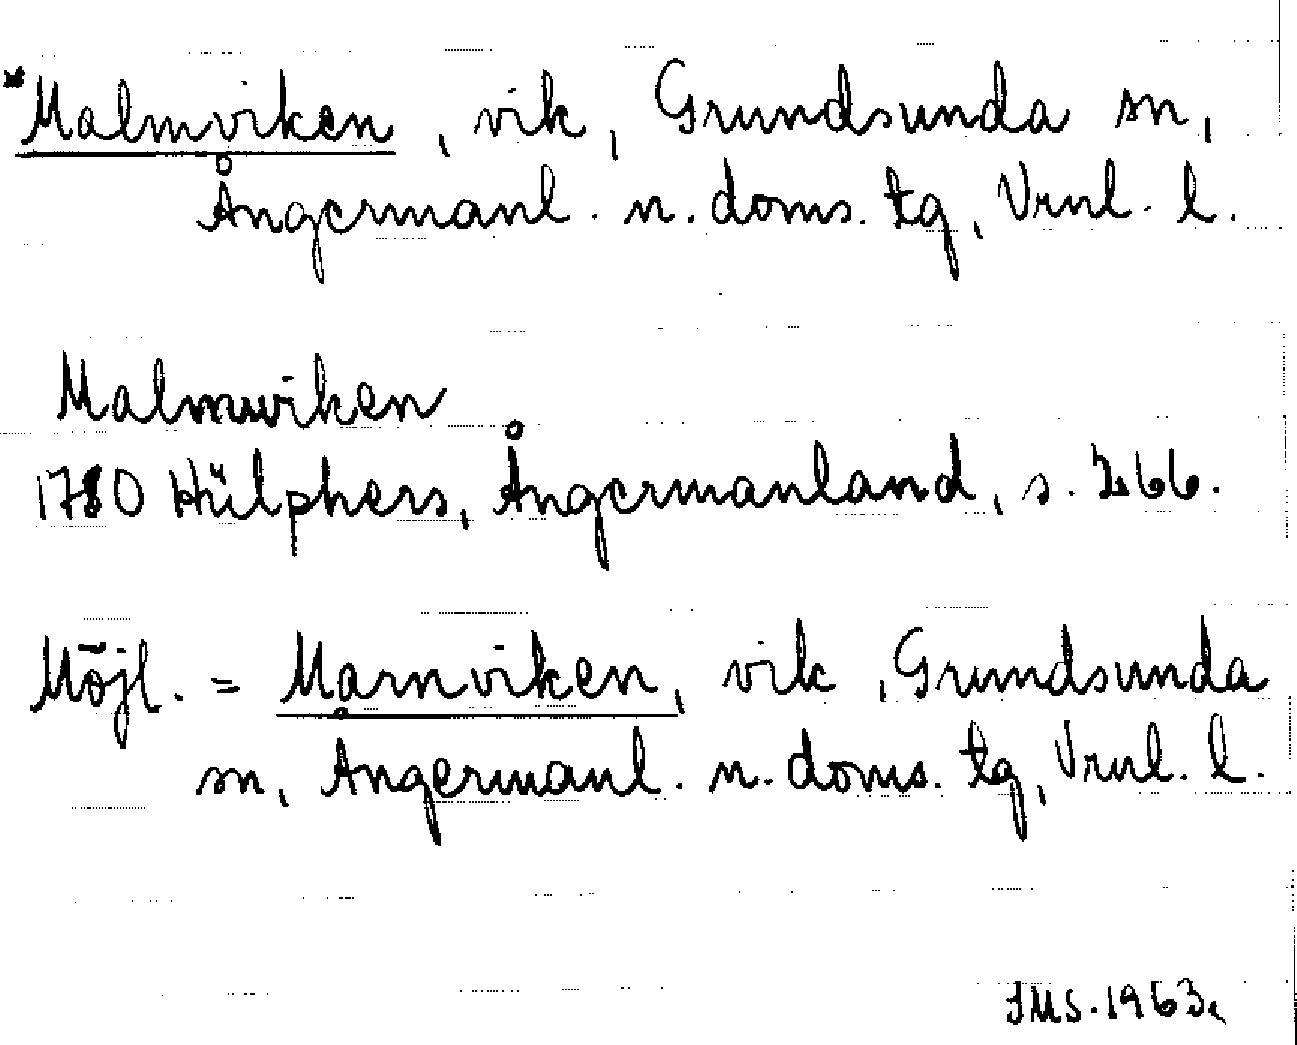 *Malmviken, vik, Grundsunda sn,
Ångermanl. n. doms. tg, Vrnl. l.
Malmwiken
1780 Hülphers, Ångermanland, s. 266.
Möjl. = Marnviken, vik, Grundsunda
sn, Ångermanl. n. doms. tg, Vrnl. l.
JMS. 1963.